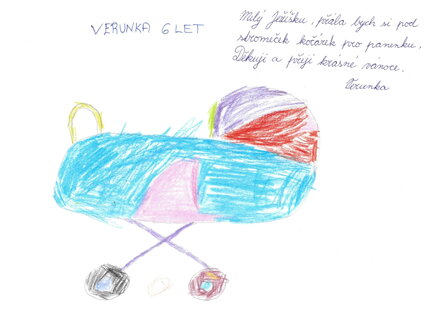 VERUNKA 6 LET
Milý Ježíšku, přála bych si pod
stromiček kočárek pro panenku.
Děkuji a přeji krásné vánoce.
Verunka